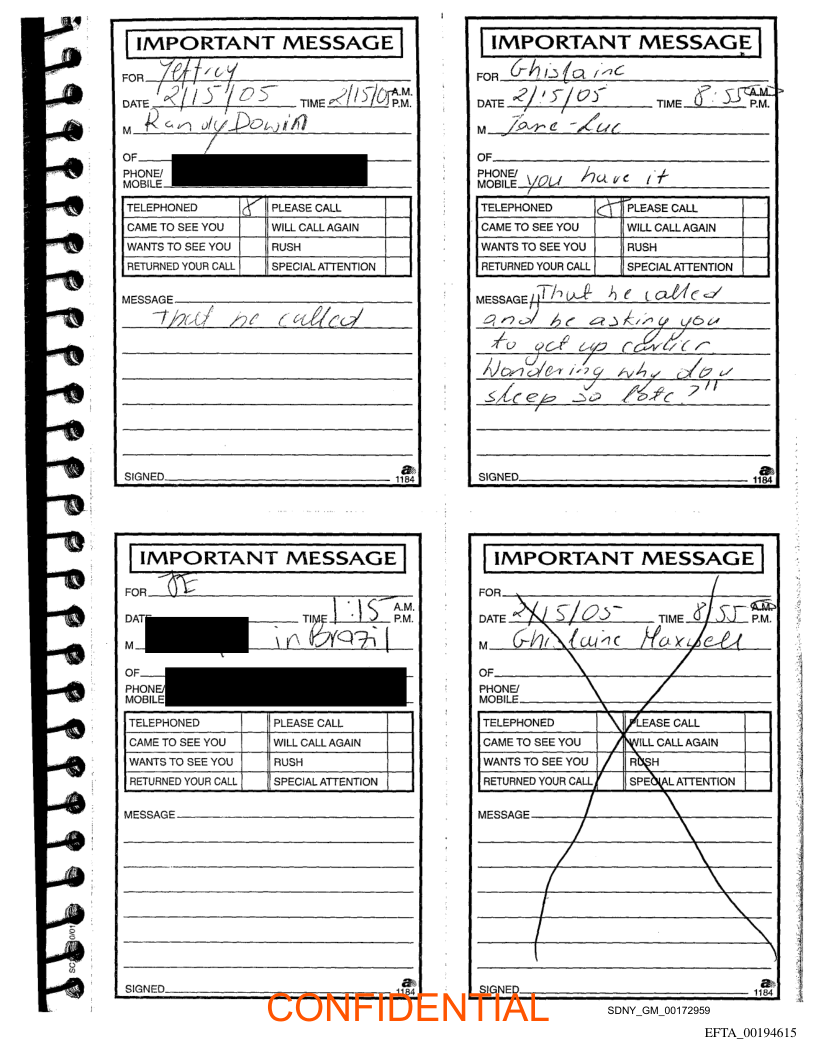 IMPORTANT MESSAGE
FOR Jeffrey
DATE 2/15/05 TIME 2/15/05 A.M. P.M.
M Randy Dowin
OF
PHONE/ MOBILE
TELEPHONED PLEASE CALL
CAME TO SEE YOU WILL CALL AGAIN
WANTS TO SEE YOU RUSH
RETURNED YOUR CALL SPECIAL ATTENTION
MESSAGE
That he called
SIGNED
a 1184
IMPORTANT MESSAGE
FOR Ghislaine
DATE 2/15/05 TIME 8:55 A.M. P.M.
M Jane-Luc
OF
PHONE/ MOBILE you have it
TELEPHONED PLEASE CALL
CAME TO SEE YOU WILL CALL AGAIN
WANTS TO SEE YOU RUSH
RETURNED YOUR CALL SPECIAL ATTENTION
MESSAGE "That he called
and he asking you
to get up earlier
Wondering why do u
sleep so late?"
SIGNED
a 1184
IMPORTANT MESSAGE
FOR JE
DATE TIME 1:15 A.M. P.M.
M in Brazil
OF
PHONE/ MOBILE
TELEPHONED PLEASE CALL
CAME TO SEE YOU WILL CALL AGAIN
WANTS TO SEE YOU RUSH
RETURNED YOUR CALL SPECIAL ATTENTION
MESSAGE
SIGNED
a 1184
IMPORTANT MESSAGE
FOR
DATE 2/15/05 TIME 8:55 A.M. P.M.
M Ghislaine Maxwell
OF
PHONE/ MOBILE
TELEPHONED PLEASE CALL
CAME TO SEE YOU WILL CALL AGAIN
WANTS TO SEE YOU RUSH
RETURNED YOUR CALL SPECIAL ATTENTION
MESSAGE
SIGNED
a 1184
CONFIDENTIAL
SDNY_GM_00172959
EFTA_00194615